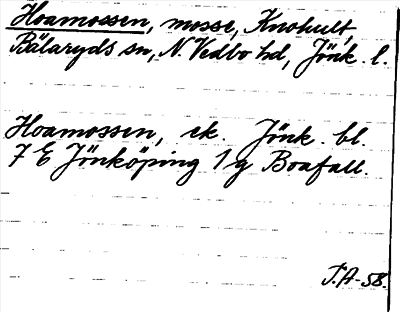 Hoamossen, mosse, Knohult,
Bälaryds sn, N. Vedbo hd, Jönk. l.
Hoamossen, ek. Jönk. bl.
7 E Jönköping 1 g Boafall.
T.A-58.